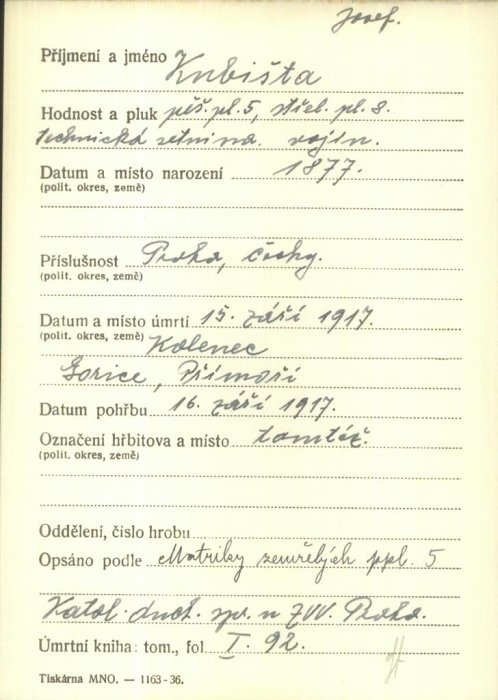 Josef.
Příjmení a jméno Kubišta
Hodnost a pluk pěš. pl. 5, střel. pl. 8.
technická setnina. vojín.
Datum a místo narození 1877.
(polit. okres, země)
Příslušnost Praha, Čechy.
(polit. okres, země)
Datum a místo úmrtí 15. září 1917.
(polit. okres, země) Kolenec
Gorice, Přímoří
Datum pohřbu 16. září 1917.
Označení hřbitova a místo tamtéž.
(polit. okres, země)
Oddělení, číslo hrobu
Opsáno podle Matriky zemřelých ppl. 5
Katol. duch. spr. u ZVV. Praha.
Úmrtní kniha: tom., fol. I. 92.
Tiskárna MNO. — 1163-36.